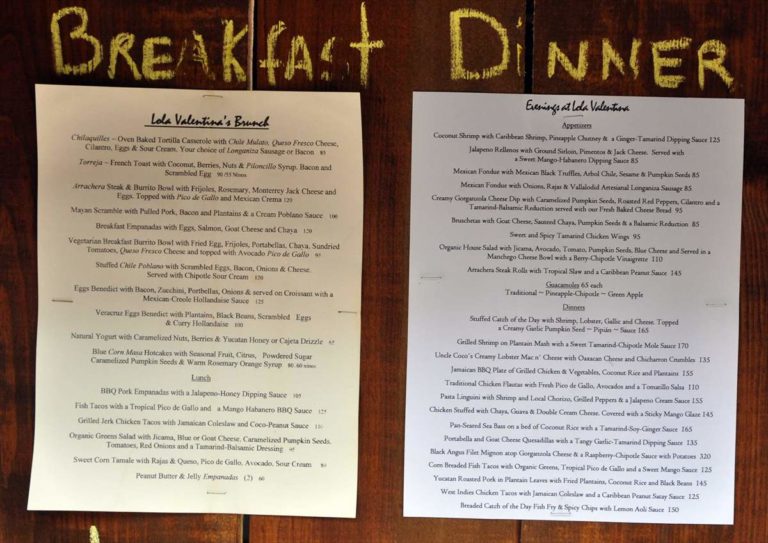 BREAKfAST
DINNER
Lola Valentina's Brunch
Chilaquilles ~ Oven Baked Tortilla Casserole with Chile Mulato, Queso Fresco Cheese,
Cilantro, Eggs & Sour Cream. Your choice of Longaniza Sausage or Bacon 85
Torreja ~ French Toast with Coconut, Berries, Nuts & Piloncillo Syrup. Bacon and
Scrambled Egg 90/55 Ninos
Arrachera Steak & Burrito Bowl with Frijoles, Rosemary, Monterey Jack Cheese and
Eggs. Topped with Pico de Gallo and Mexican Crema 120
Mayan Scramble with Pulled Pork, Bacon and Plantains & a Cream Poblano Sauce 100
Breakfast Empanadas with Eggs, Salmon, Goat Cheese and Chaya 120
Vegetarian Breakfast Burrito Bowl with Fried Egg, Frijoles, Portabellas, Chaya, Sundried
Tomatoes, Queso Fresco Cheese and topped with Avocado Pico de Gallo 95
Stuffed Chile Poblano with Scrambled Eggs, Bacon, Onions & Cheese.
Served with Chipotle Sour Cream 120
Eggs Benedict with Bacon, Zucchini, Portbellos, Onions & served on Croissant with a
Mexican-Creole Hollandaise Sauce 125
Veracruz Eggs Benedict with Plantains, Black Beans, Scrambled Eggs
& Curry Hollandaise 100
Natural Yogurt with Caramelized Nuts, Berries & Yucatan Honey or Cajeta Drizzle
Blue Corn Masa Hotcakes with Seasonal Fruit, Citrus, Powdered Sugar
Caramelized Pumpkin Seeds & Warm Rosemary Orange Syrup 80 60 ninos
Lunch
BBQ Pork Empanadas with a Jalapeno-Honey Dipping Sauce 105
Fish Tacos with a Tropical Pico de Gallo and a Mango Habanero BBQ Sauce 125
Grilled Jerk Chicken Tacos with Jamaican Coleslaw and Coco-Peanut Sauce
Organic Greens Salad with Jicama, Blue or Goat Cheese. Caramelized Pumpkin Seeds,
Tomatoes, Red Onions and a Tamarind-Balsamic Dressing 95
Sweet Corn Tamale with Rajas & Queso, Pico de Gallo, Avocado, Sour Cream 80
Peanut Butter & Jelly Empanadas (2) 60
Evenings at Lola Valentina
Appetizers
Coconut Shrimp with Caribbean Shrimp, Pineapple Chutney & a Ginger-Tamarind Dipping Sauce 125
Jalapeno Rellenos with Ground Sirloin, Pimentos & Jack Cheese. Served with
a Sweet Mango-Habanero Dipping Sauce 85
Mexican Fondue with Mexican Black Truffles, Arbol Chile, Sesame & Pumpkin Seeds 85
Mexican Fondue with Onions, Rajas & Vallalodid Artesianal Longaniza Sausage 85
Creamy Gorgonzola Cheese Dip with Caramelized Pumpkin Seeds, Roasted Red Peppers, Cilantro and a
Tamarind-Balsamic Reduction served with our Fresh Baked Cheese Bread 95
Brunchetas with Goat Cheese, Sauteed Chaya, Pumpkin Seeds & a Balsamic Reduction 85
Sweet and Spicy Tamarind Chicken Wings 95
Organic House Salad with Jicama, Avocado, Tomato, Pumpkin Seeds, Blue Cheese and Served in a
Manchego Cheese Bowl with a Berry-Chipotle Vinaigrette 110
Arrachera Steak Rolls with Tropical Slaw and a Caribbean Peanut Sauce 145
Guacamoles 65 each
Traditional ~ Pineapple-Chipotle ~ Green Apple
Dinners
Stuffed Catch of the Day with Shrimp, Lobster, Gallic and Cheese. Topped
a Creamy Garlic Pumpkin Seed ~ Pipián ~ Sauce 165
Grilled Shrimp on Plantain Mash with a Sweet Tamarind-Chipotle Mole Sauce 170
Uncle Coco's Creamy Lobster Mac n' Cheese with Oaxacan Cheese and Chicharron Crumbles 135
Jamaican BBQ Plate of Grilled Chicken & Vegetables, Coconut Rice and Plantains 155
Traditional Chicken Flautas with Fresh Pico de Gallo, Avocados and a Tomatillo Salsa 110
Pasta Linguini with Shrimp and Local Chorizo, Grilled Peppers & a Jalapeno Cream Sauce 155
Chicken Stuffed with Chaya, Guava & Double Cream Cheese. Covered with a Sticky Mango Glaze 145
Pan-Seared Sea Bass on a bed of Coconut Rice with a Tamarind-Soy-Ginger Sauce 165
Portabella and Goat Cheese Quesadillas with a Tangy Garlic-Tamarind Dipping Sauce 135
Black Angus Filet Mignon atop Gorgonzola Cheese & a Raspberry-Chipotle Sauce with Potatoes 320
Corn Breaded Fish Tacos with Organic Greens, Tropical Pico de Gallo and a Sweet Mango Sauce 125
Yucatan Roasted Pork in Plantain Leaves with Fried Plantains, Coconut Rice and Black Beans 145
West Indies Chicken Tacos with Jamaican Coleslaw and a Caribbean Peanut Satay Sauce 125
Breaded Catch of the Day Fish Fry & Spicy Chips with Lemon Aoli Sauce 150